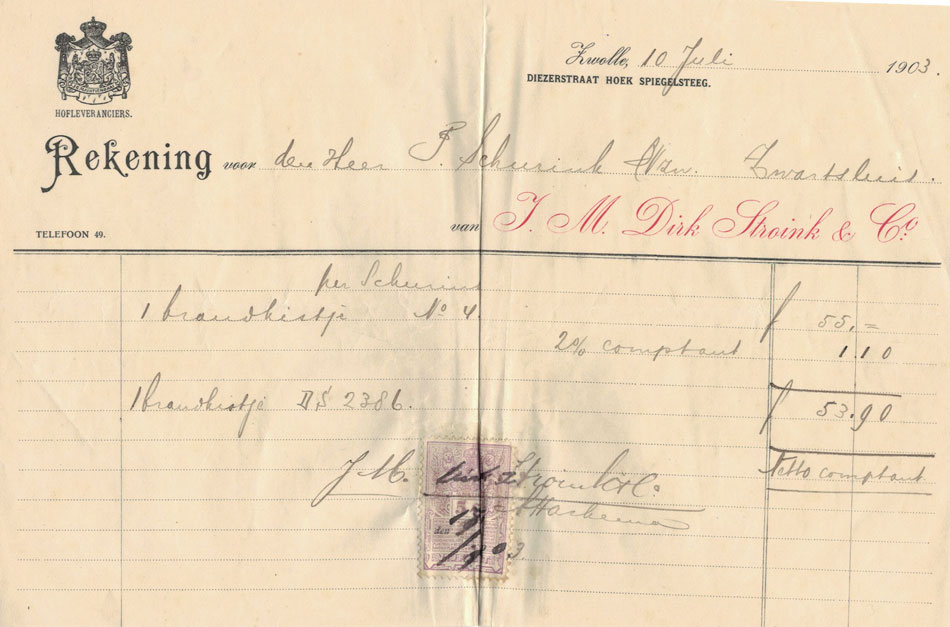 HOFLEVERANCIERS.
Zwolle, 10 Juli 1903.
DIEZERSTRAAT HOEK SPIEGELSTEEG.
Rekening voor den Heer P. Schurink Zwartsluis.
TELEFOON 49.
van J. M. Dirk Stroink & Co.
per Schurink
1 brandkistje No 4. f 55,=
2% comptant 1.10
1 brandkistje D$ 2386. f 53.90
Netto comptant
J M. Dirk Stroink & Co.
den